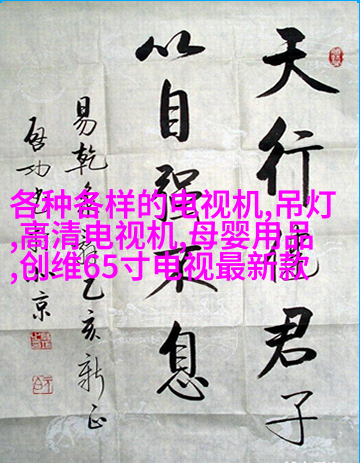 天行健君子
以自强不息
易乾乙亥新正
啟功京
各种各样的电视机,吊灯
,高清电视机,母婴用品
,创维65寸电视最新款